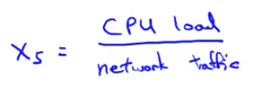 x5 = CPU load
network traffic